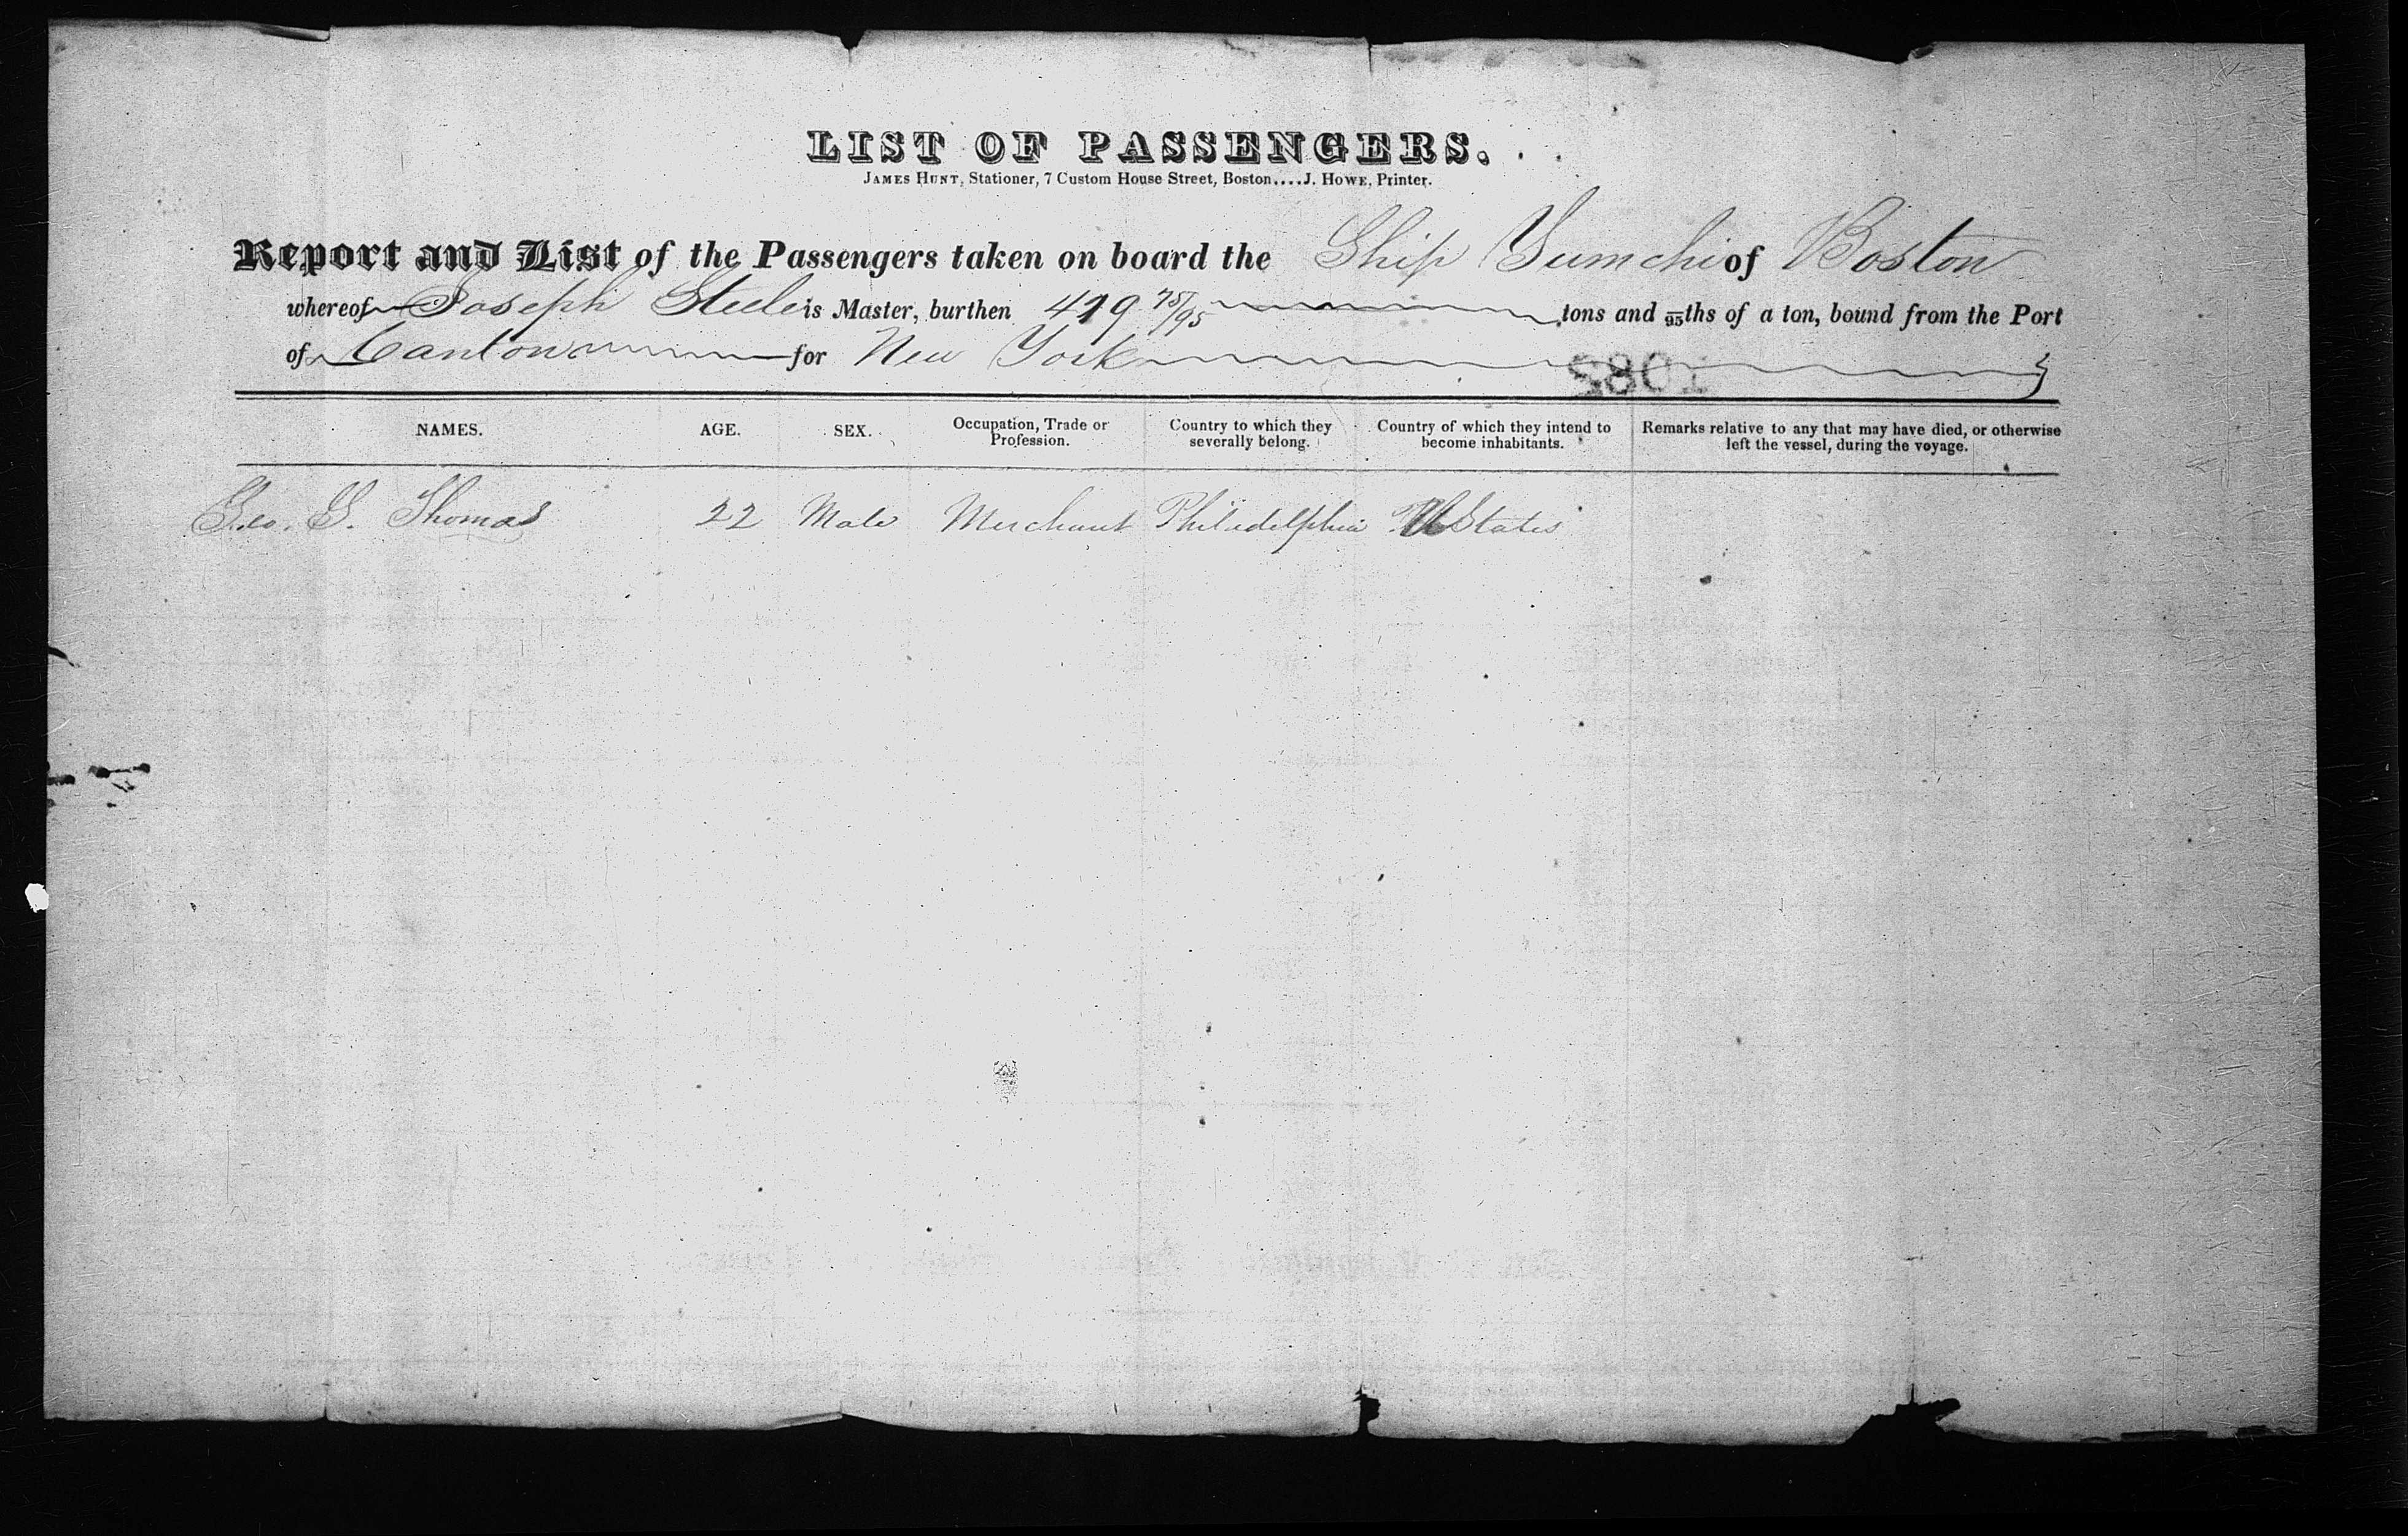 LIST OF PASSENGERS.
JAMES HUNT, Stationer, 7 Custom House Street, Boston....J. HOWE, Printer.
Report and List of the Passengers taken on board the Ship Sumchi of Boston
whereof Joseph Steele is Master, burthen 419 75/95 tons and 95ths of a ton, bound from the Port
of Canton for New York
NAMES. AGE. SEX. Occupation, Trade or Profession. Country to which they severally belong. Country of which they intend to become inhabitants. Remarks relative to any that may have died, or otherwise left the vessel, during the voyage.
Geo. G. Thomas 22 Male Merchant Philadelphia U States